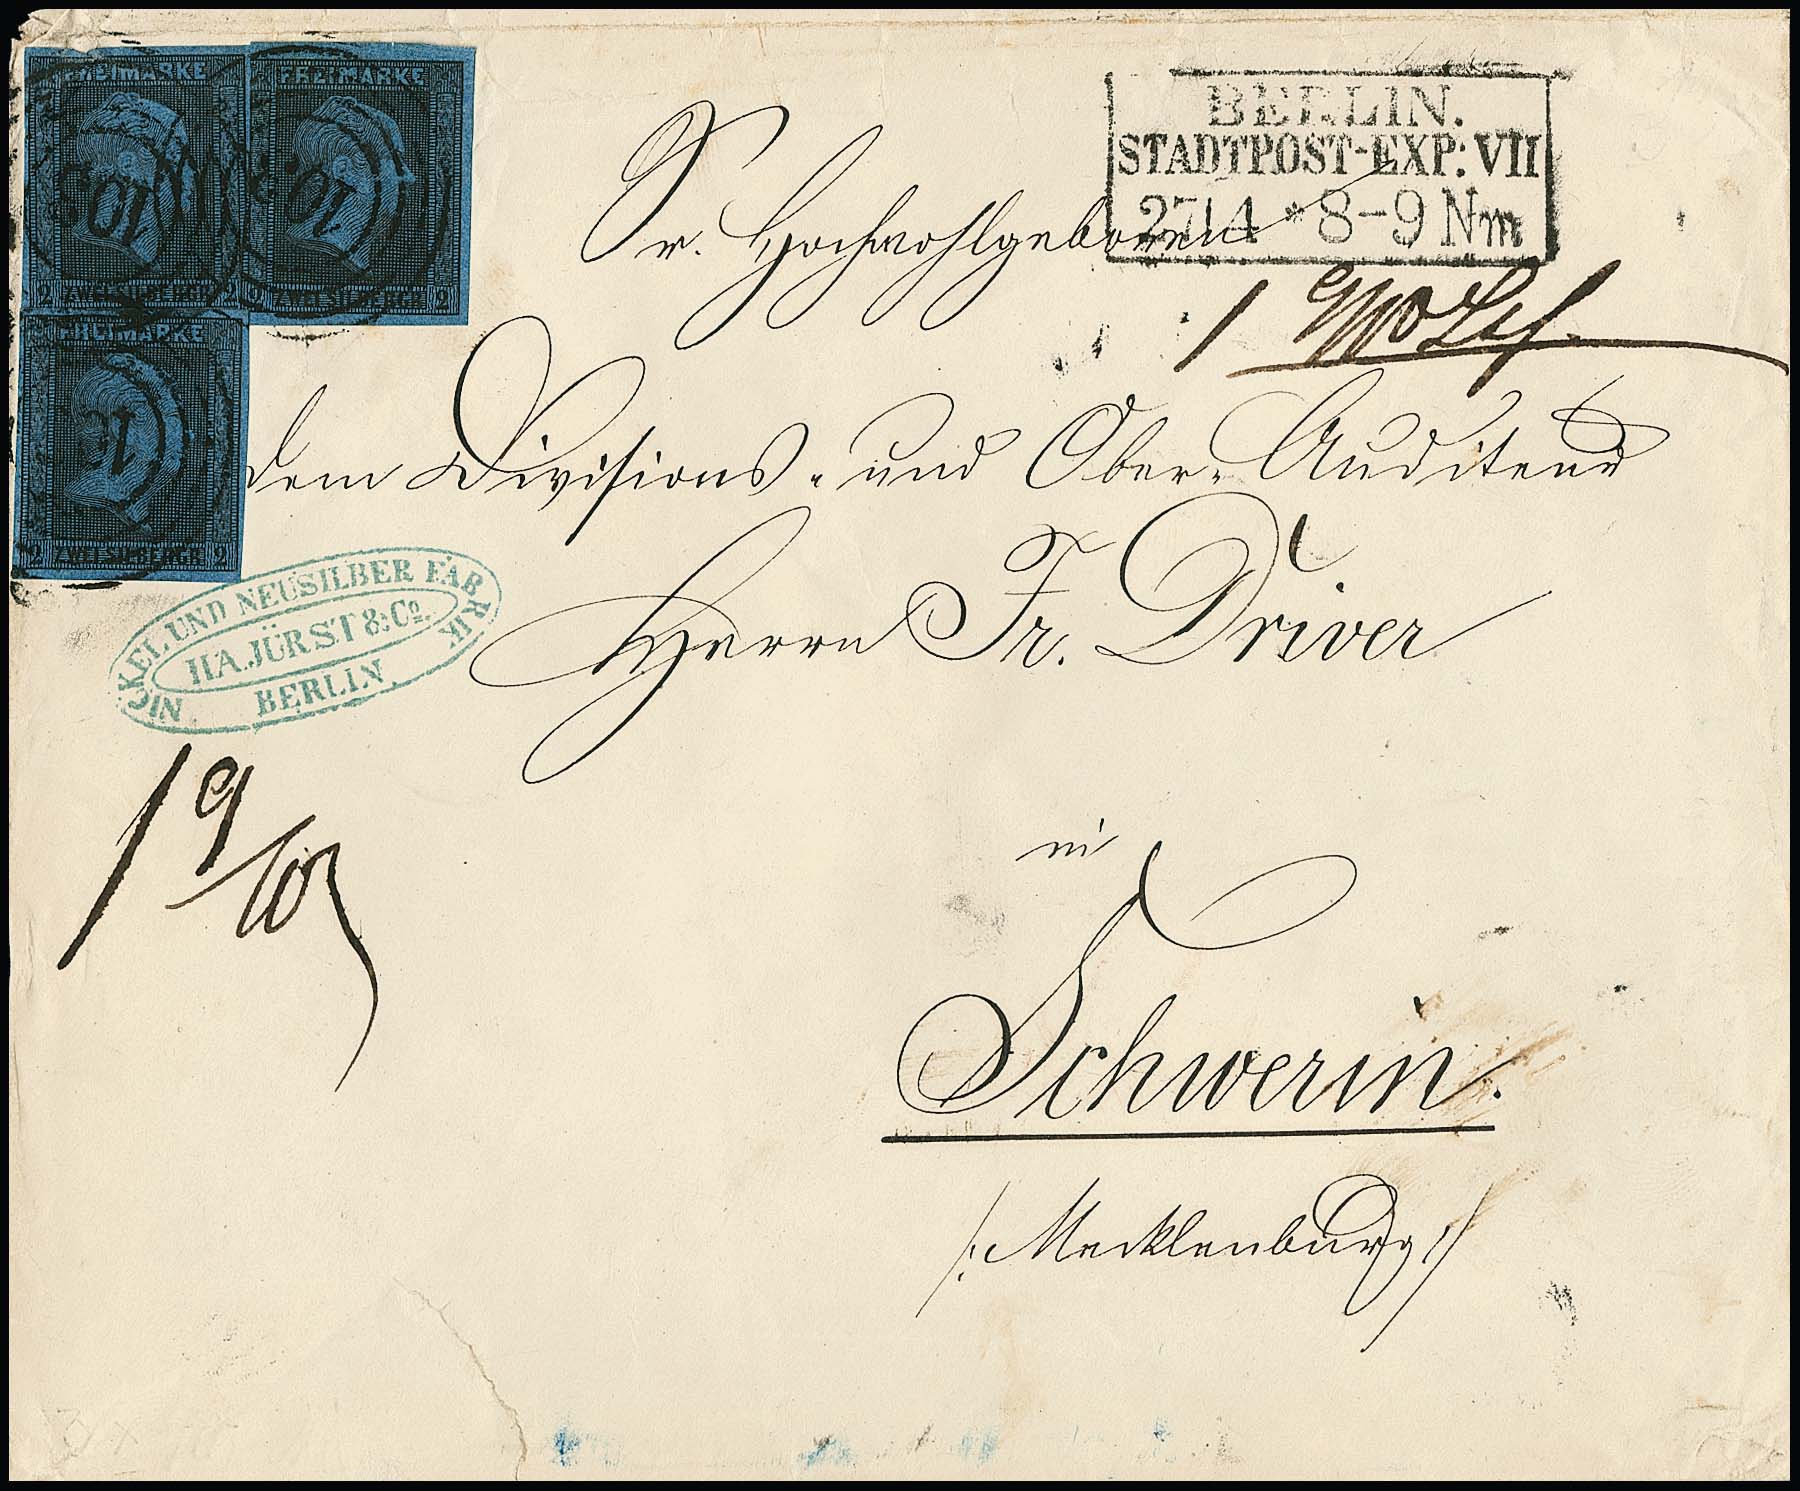 FREIMARKE
2 ZWEI SILBERGR 2
FREIMARKE
2 ZWEI SILBERGR 2
FREIMARKE
2 ZWEI SILBERGR 2
BERLIN.
STADTPOST-EXP: VII
27 4 * 8-9 Nm
Sr. Hochwohlgeboren
dem Divisions- und Ober-Auditeur
Herrn Fr. Driver
NICKEL UND NEUSILBER FABRIK
HA. JÜRST & Co.
BERLIN.
in
Schwerin.
/: Mecklenburg :/